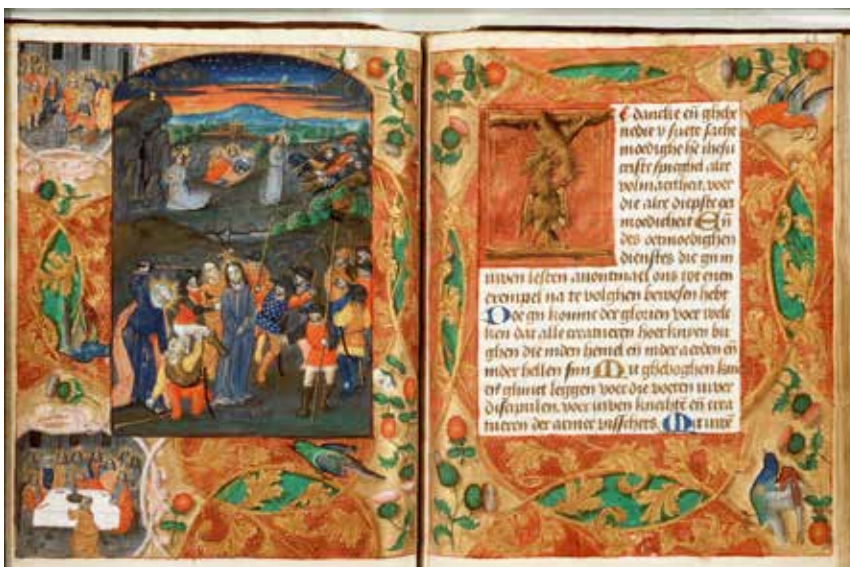 c dancke en̄ ghebe
nedie v suete sacht
moedighe he ihesu
eerste spieghel alre
volmaectheit. voer
die alre diepste oet
moedicheit En̄
des oetmoedighen
dienstes die ghi in
uwen lesten auontmael ons tot enen
exempel na te volghen bewesen hebt
Doe ghi konine der glorien voer wele
ken dat alle creatueren hoer knien bu
ghen die inden hemel en̄ inder aerden en̄
inder hellen sijn Mit gheboghen
leggen voer die voeten uwer
discipulen. voer uwen knechtē en̄ crea
tueren der armer visschers. Mit uwē